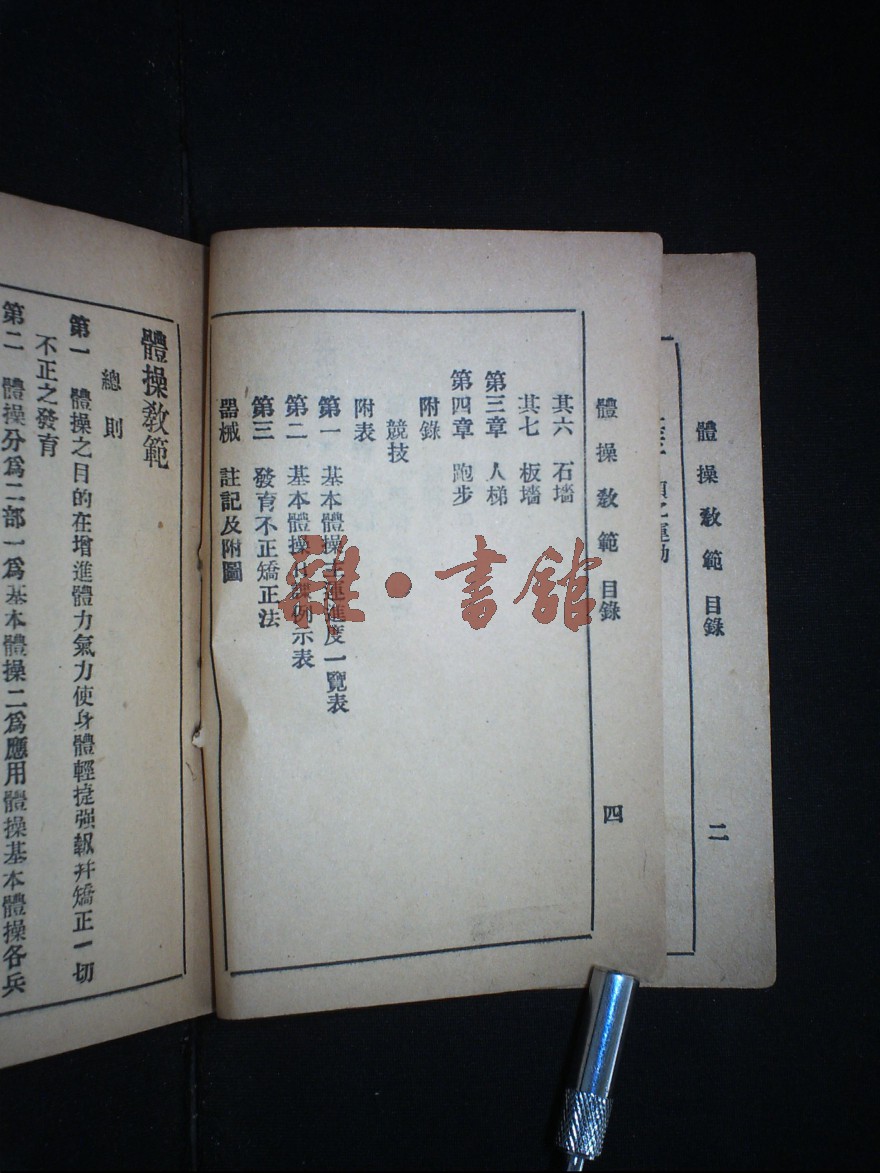 體操敎範 目錄
二
體操敎範 目錄
四
其六 石墻
其七 板墻
第三章 人梯
第四章 跑步
附錄
競技
附表
第一 基本體操主運進度一覽表
第二 基本體操日課例示表
第三 發育不正矯正法
器械 註記及附圖
體操敎範
總則
第一 體操之目的在增進體力氣力使身體輕捷强靱幷矯正一切
不正之發育
第二 體操分爲二部一爲基本體操二爲應用體操基本體操各兵
雜·書館